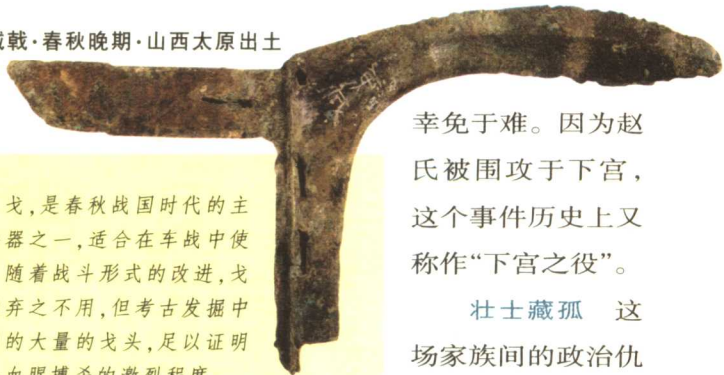 戟·春秋晚期·山西太原出土
戈,是春秋战国时代的主
器之一,适合在车战中使
随着战斗形式的改进,戈
弃之不用,但考古发掘中
的大量的戈头,足以证明
幸免于难。因为赵
氏被围攻于下宫,
这个事件历史上又
称作“下宫之役”。
壮士藏孤 这
场家族间的政治仇